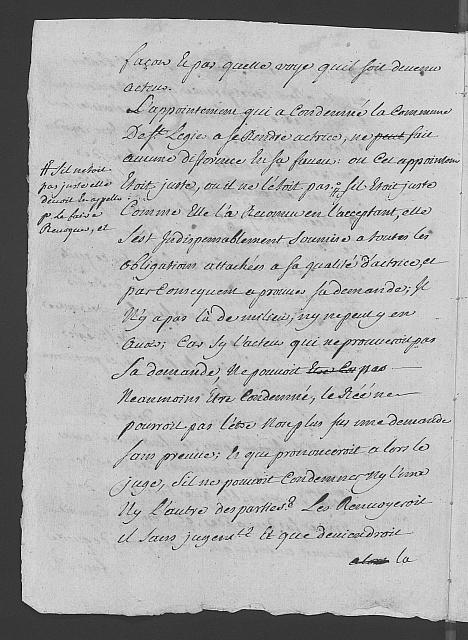 façon Et pas quelle voye quil soit devenu
acteur.
L'appointement qui a Condenné la Commune
De St. Legie a se Rendre actrice, ne peut fait
aucune differance En sa faveur: ou Cet appointem
Etoit juste, ou il ne l'étoit pas; # Sil Etoit juste
Comme Elle l'a Reconnu en l'acceptant, elle
s'est Indispensablement Soumise a toutes les
obligations attachées a sa qualité d'actrice, et
par Consequent a prouver sa demande; Il
N'y a pas là de milieu, n'y ne peut y en
avoir; Car Sy l'acteur qui ne prouveroit pas
Sa demande, Ne pouvoit Etre Con pas
Neaumoins Être Condenné, le Réé ne
pourroit pas l'être Non plus sur une demande
sans preuve; Et que prononceroit alors le
juge, Sil ne pouvoit Condemner Ny l'une
Ny L'autre des parties? Les Renvoyeroit
il Sans jugemt? Et que deviendroit
alors la
# Sil netoit
pas juste elle
devoit En appeller
pr le faire
Revoquer, et